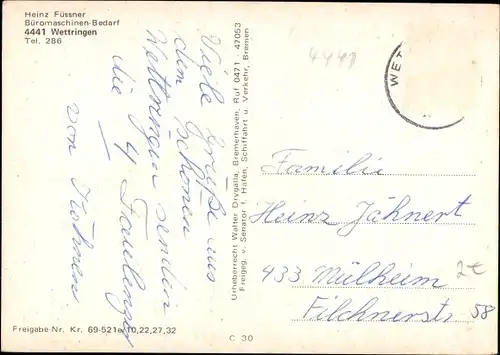 Heinz Füssner
Büromaschinen-Bedarf
4441 Wettringen
Tel. 286
Viele Grüße aus
dem schönen
Wettringen senden
die 4 Faulenzer
von Köhnen
Urheberrecht Walter Drygalla, Bremerhaven, Ruf 0471 - 47053
Freigeg. v. Senator f. Häfen, Schiffahrt u. Verkehr, Bremen
4441
WET
Familie
Heinz Jähnert
433 Mülheim
Filchnerstr 58
2€
Freigabe-Nr. Kr. 69-521e/10,22,27,32
C 30